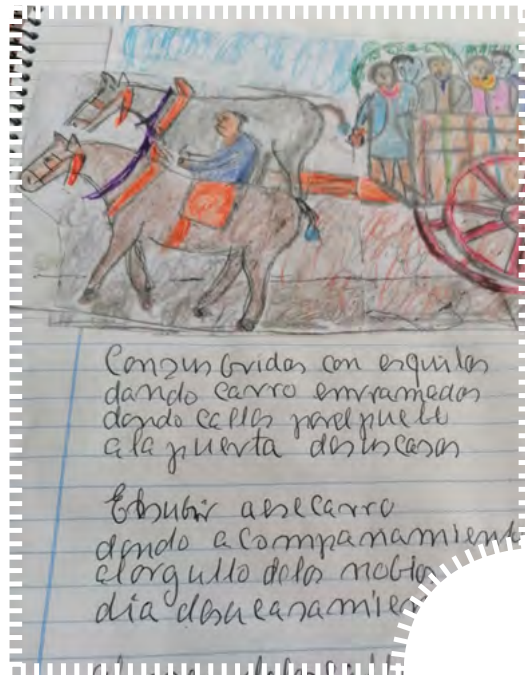 Con sus bridas con esquilas
dando carro enrramados
dando calles por el pueblo
a la puerta de sus casas
El subir a ese carro
dando acompañamient
el orgullo de los nobios
dia de su casamien